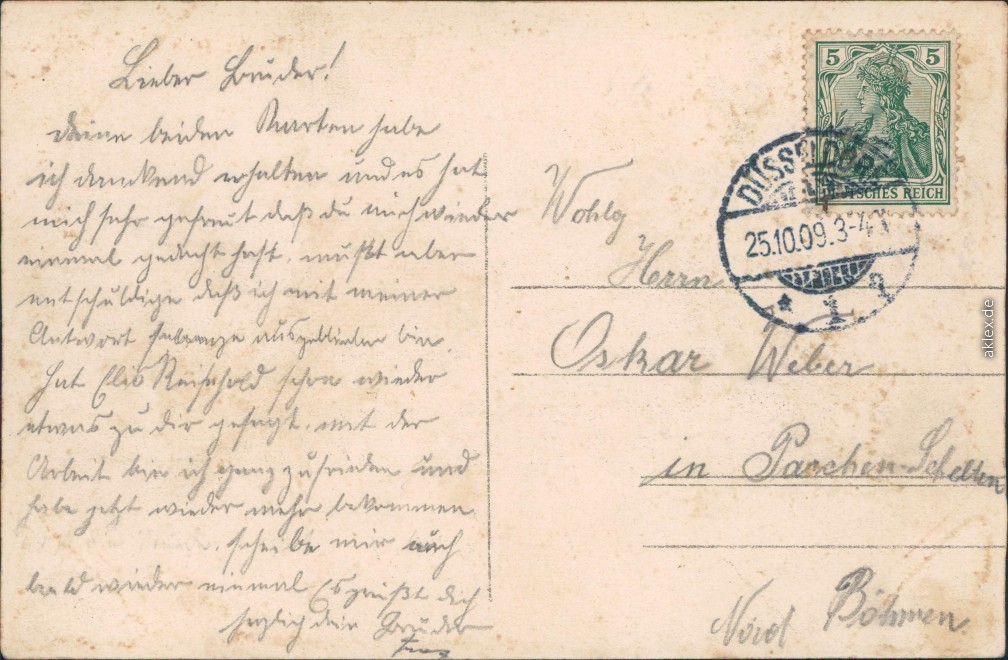 Lieber Bruder!
deine beiden Karten habe
ich dankend erhalten und es hat
mich sehr gefreut daß du mich wieder
einmal gedacht hast. mußt aber
entschuldige daß ich mit meiner
Antwort solange ausgeblieben bin.
Hat Reinhold schon wieder
etwas zu dir gesagt. mit der
Arbeit bin ich ganz zufrieden und
habe jetzt wieder mehr bekommen
scheibe mir auch
bald wieder einmal Es grüßt dich
herzlich dein Bruder
5 5
DEUTSCHES REICH
DÜSSELDORF
25.10.09.3-4
* 1
Wohlg
Herrn
Oskar Weber
in Parchen-Schelten
Nord Böhmen
aklex.de